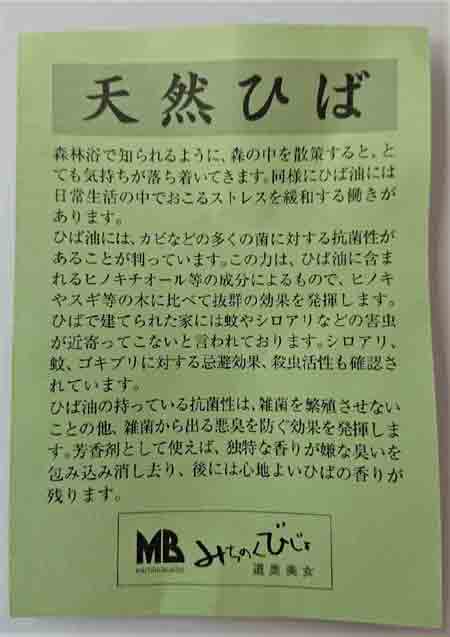 天然ひば
森林浴で知られるように、森の中を散策すると、と
ても気持ちが落ち着いてきます。同様にひば油には
日常生活の中でおこるストレスを緩和する働きが
あります。
ひば油には、カビなどの多くの菌に対する抗菌性が
あることが判っています。この力は、ひば油に含ま
れるヒノキチオール等の成分によるもので、ヒノキ
やスギ等の木に比べて抜群の効果を発揮します。
ひばで建てられた家には蚊やシロアリなどの害虫
が近寄ってこないと言われております。シロアリ、
蚊、ゴキブリに対する忌避効果、殺虫活性も確認さ
れています。
ひば油の持っている抗菌性は、雑菌を繁殖させない
ことの他、雑菌から出る悪臭を防ぐ効果を発揮しま
す。芳香剤として使えば、独特な香りが嫌な臭いを
包み込み消し去り、後には心地よいひばの香りが
残ります。
MB みちのくびじょ
道奥美女